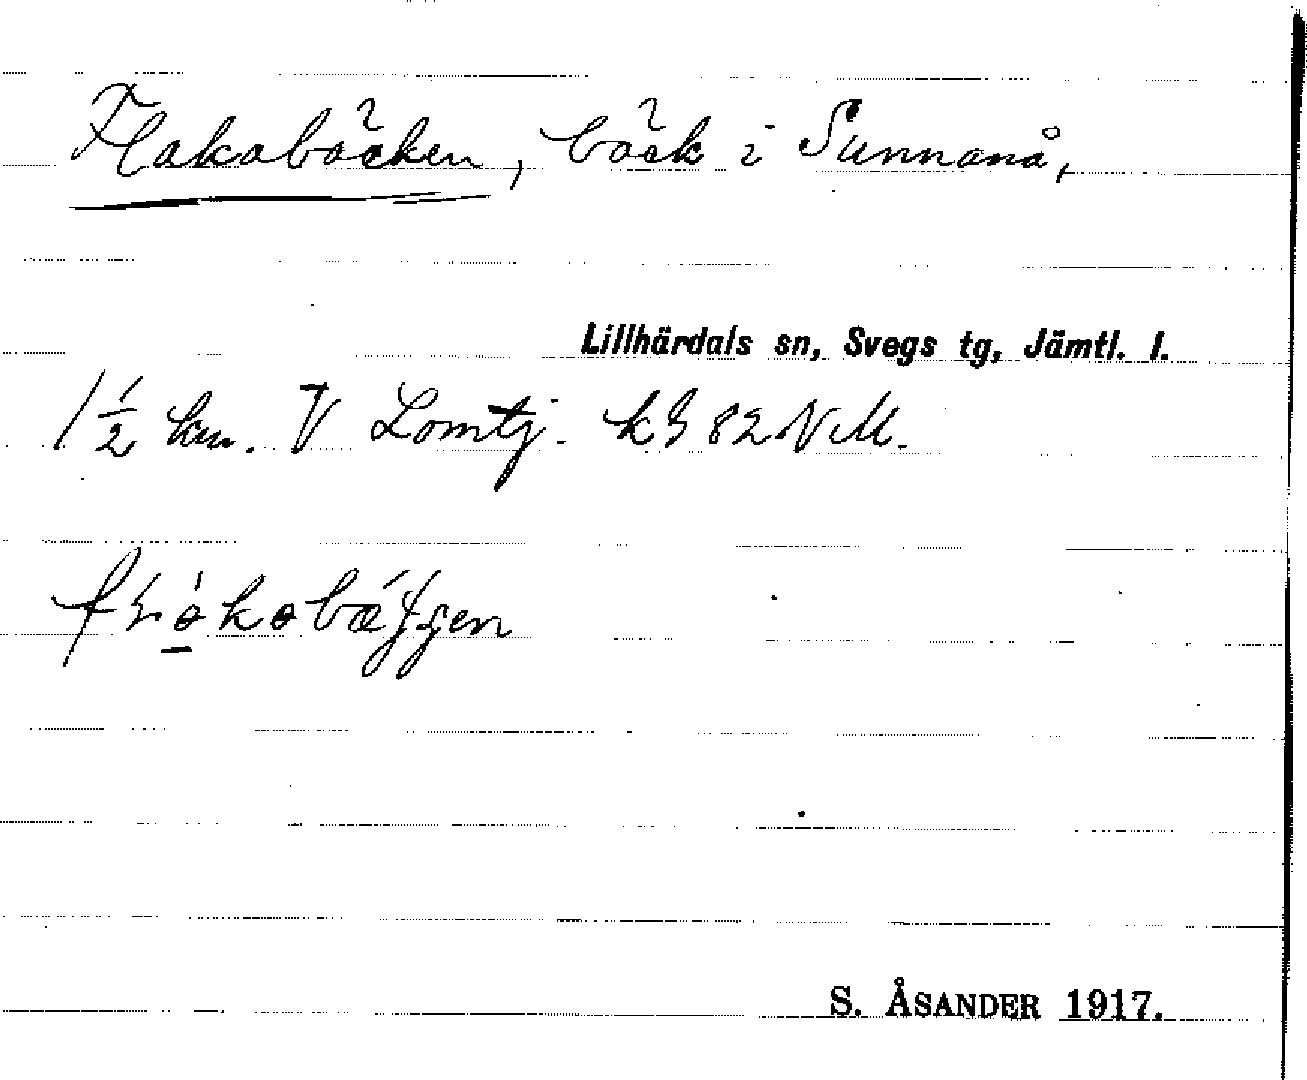 Flakabäcken, bäck i Sunnanå,
Lillhärdals sn, Svegs tg, Jämtl. l.
1 1/2 km. V Lomtj. kbl 82 NM.
S. ÅSANDER 1917.